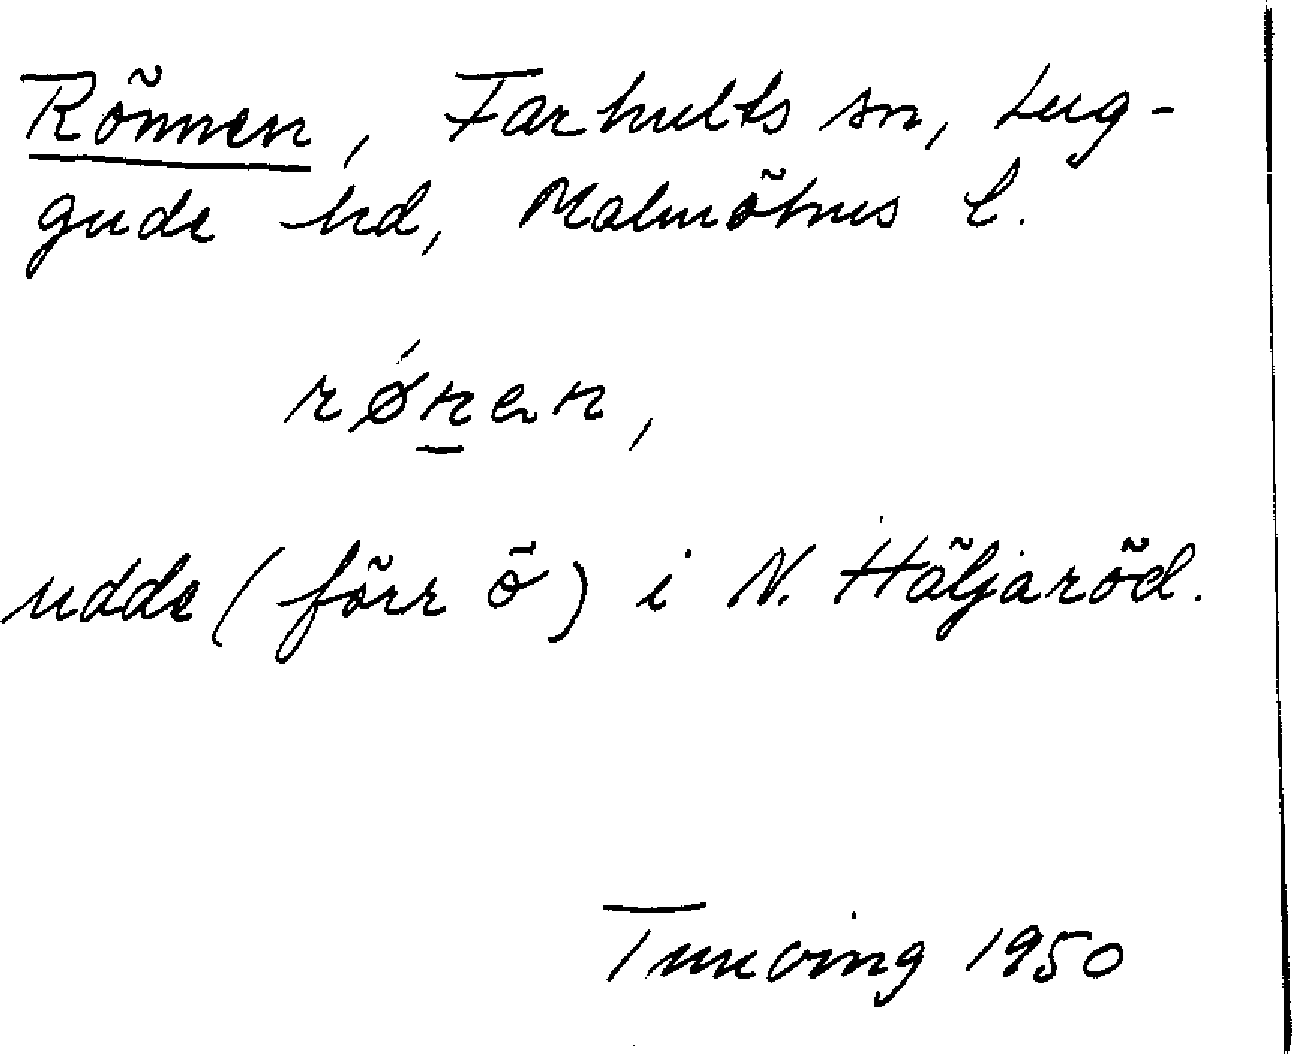 Rönnen, Farhults sn, Lug-
gude hd, Malmöhus l.
rǿn̲en,
udde (förr ö) i N. Häljaröd.
Tuneving 1950